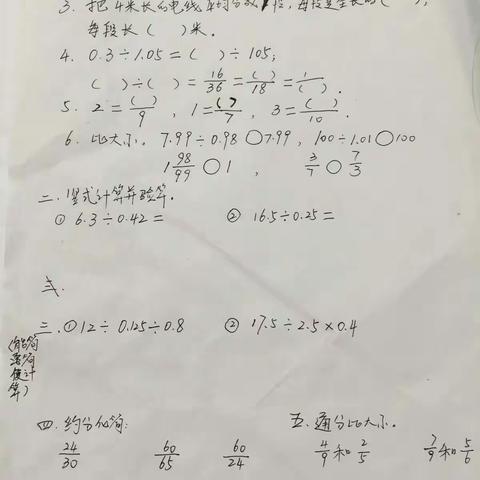 3. 把4米长的电线平均分成 段, 每段是全长的( ),
每段长( )米.
4. 0.3÷1.05=( )÷105;
( )÷( )=16/36=( )/18=1/( ).
5. 2=( )/9, 1=( )/7, 3=( )/10.
6. 比大小. 7.99÷0.98○7.99, 100÷1.01○100
1 98/99○1, 3/7○7/3
二.竖式计算并验算.
① 6.3÷0.42= ② 16.5÷0.25=
三.
三.①12÷0.125÷0.8 ② 17.5÷2.5×0.4
(能简
要简
便计
算)
四.约分化简: 五.通分比大小.
24/30 60/65 60/24 4/9和2/5 7/9和5/6